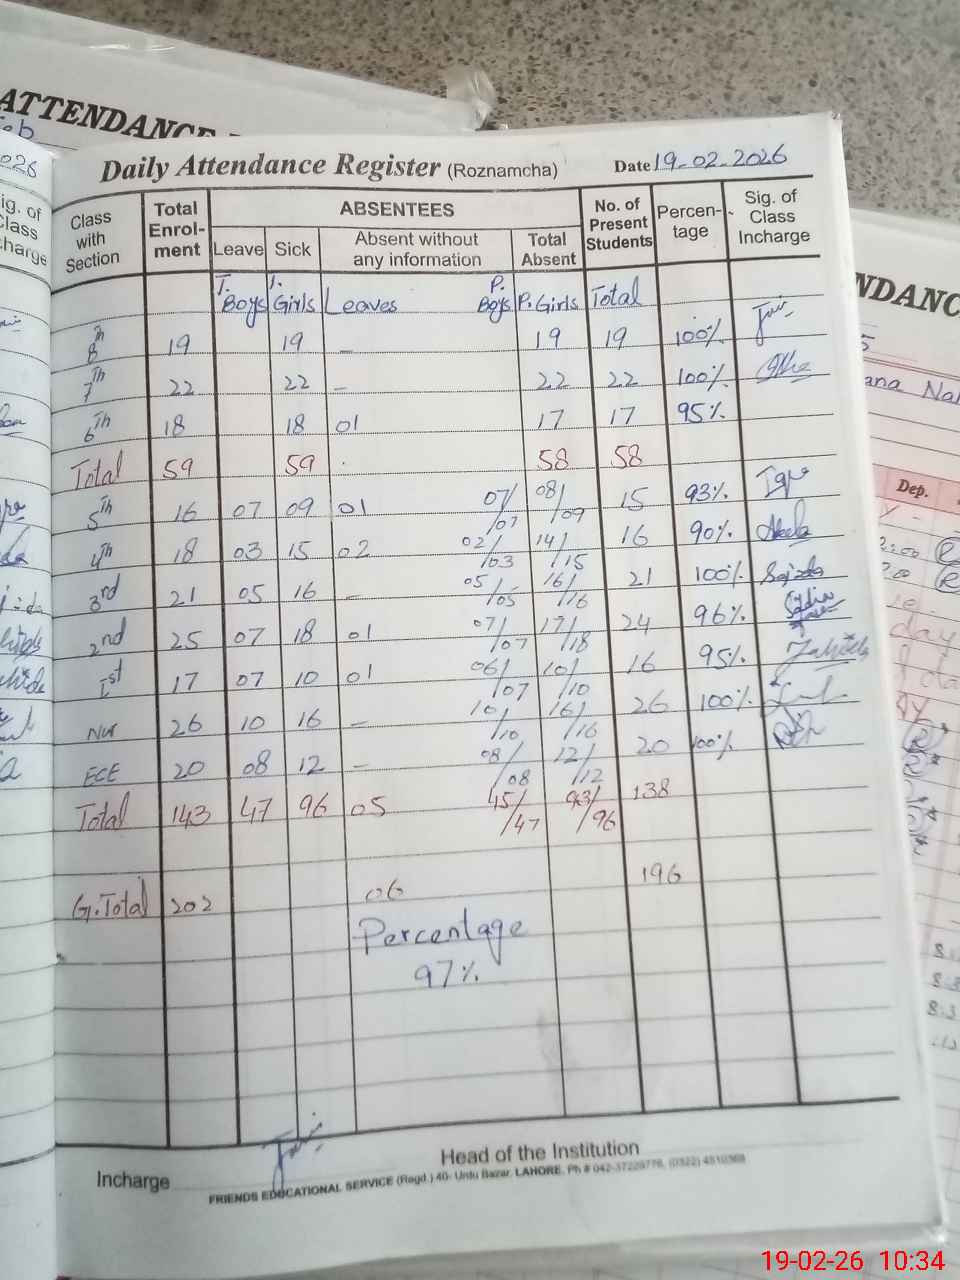 ATTENDANCE
Feb
2026
Sig. of
Class
Incharge
Daily Attendance Register (Roznamcha) Date 19-02-2026
Class with Section Total Enrol-ment ABSENTEES No. of Present Students Percen-tage Sig. of Class Incharge
Leave Sick Absent without any information Total Absent
T. Boys T. Girls Leaves P. Boys P. Girls Total
8th 19 19 – 19 19 100%
7th 22 22 – 22 22 100%
6th 18 18 01 17 17 95%
Total 59 59 . 58 58
5th 16 07 09 01 07/07 08/09 15 93% Iqra
4th 18 03 15 02 02/03 14/15 16 90%
3rd 21 05 16 – 05/05 16/16 21 100% Sajida
2nd 25 07 18 01 07/07 17/18 24 96%
1st 17 07 10 01 06/07 10/10 16 95%
Nur 26 10 16 – 10/10 16/16 26 100%
ECE 20 08 12 – 08/08 12/12 20 100%
Total 143 47 96 05 45/47 93/96 138
G.Total 202 06 196
Percentage
97%
Incharge Head of the Institution
FRIENDS EDUCATIONAL SERVICE (Regd.) 40- Urdu Bazar, LAHORE, Ph # 042-37228776, (0322) 4810368
NDANC
5
ana Na
Dep.
19-02-26 10:34